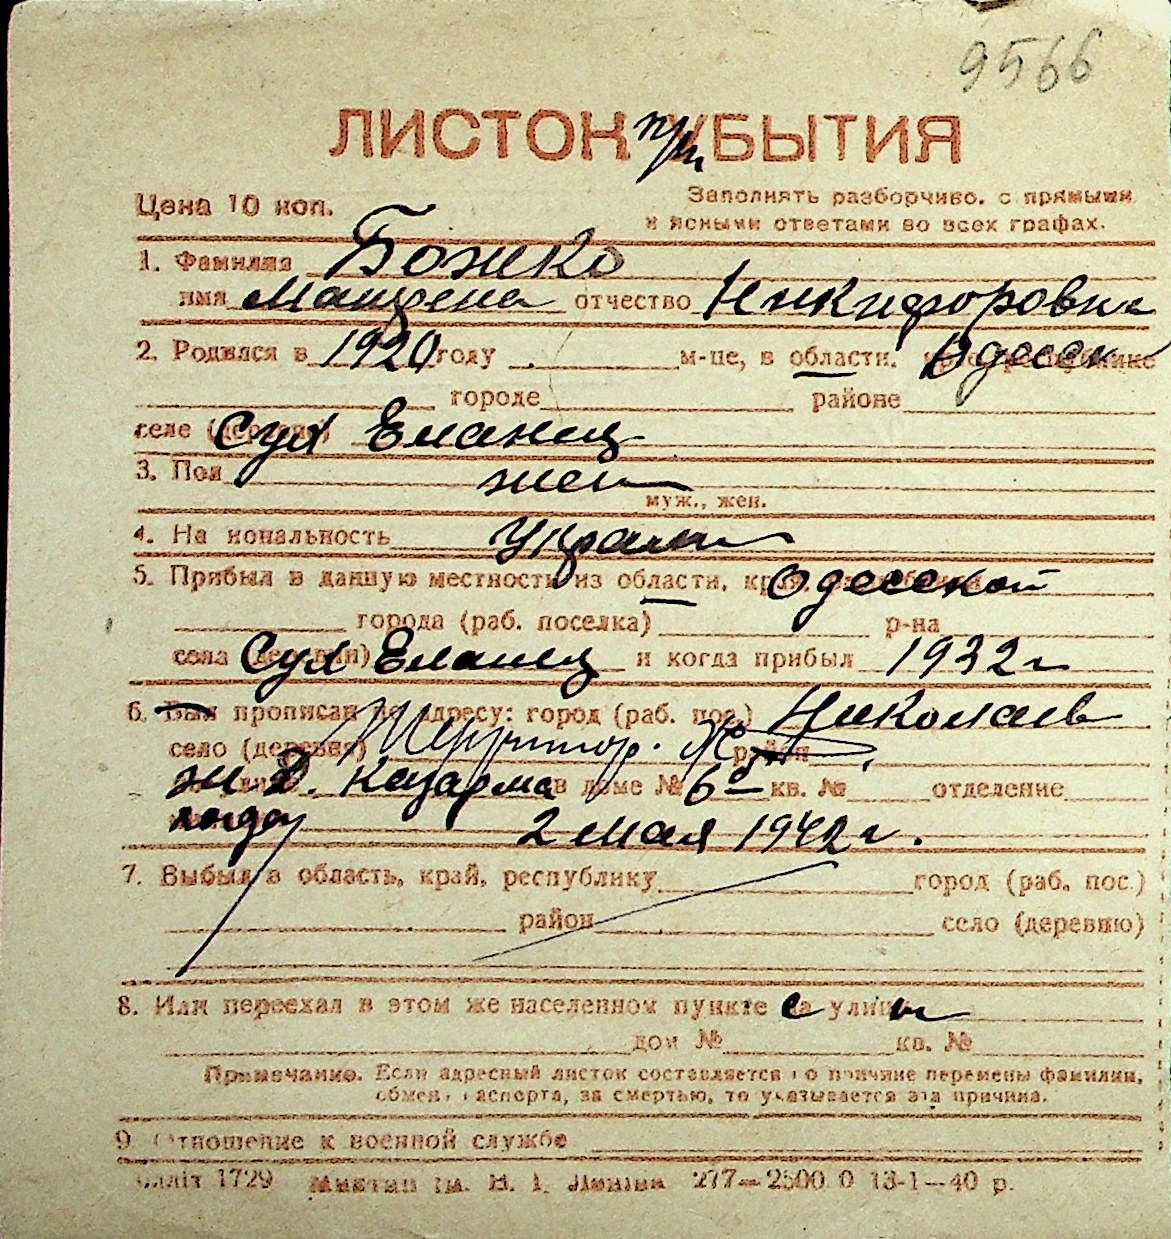 9566
ЛИСТОК ПРИБЫТИЯ
Цена 10 коп. Заполнять разборчиво, с прямыми
и ясными ответами во всех графах.
1. Фамилия Божко
имя отчество Никифоровна
2. Родился в 1920 году м-це, в области, Одесск
городе районе
селе (деревня) Сух Еланец
3. Пол жен
муж., жен.
4. Национальность Украин
5. Прибыл в данную местность из области, края, Одесской
города (раб. поселка) р-на
села (деревни) Сух Еланец и когда прибыл 1932 г
6. Был прописан по адресу: город (раб. пос.) Николаев
село (деревня) Территор. район
Ж.Д. казарма в доме № 6 кв. № отделение
2 мая 1942 г.
7. Выбыл в область, край, республику город (раб. пос.)
район село (деревню)
8. Или переехал в этом же населенном пункте с улицы
дом № кв. №
Примечание. Если адресный листок составляется по причине перемены фамилии,
обмена паспорта, за смертью, то указывается эта причина.
9. Отношение к военной службе
1729 277—2500 0 13-1—40 р.